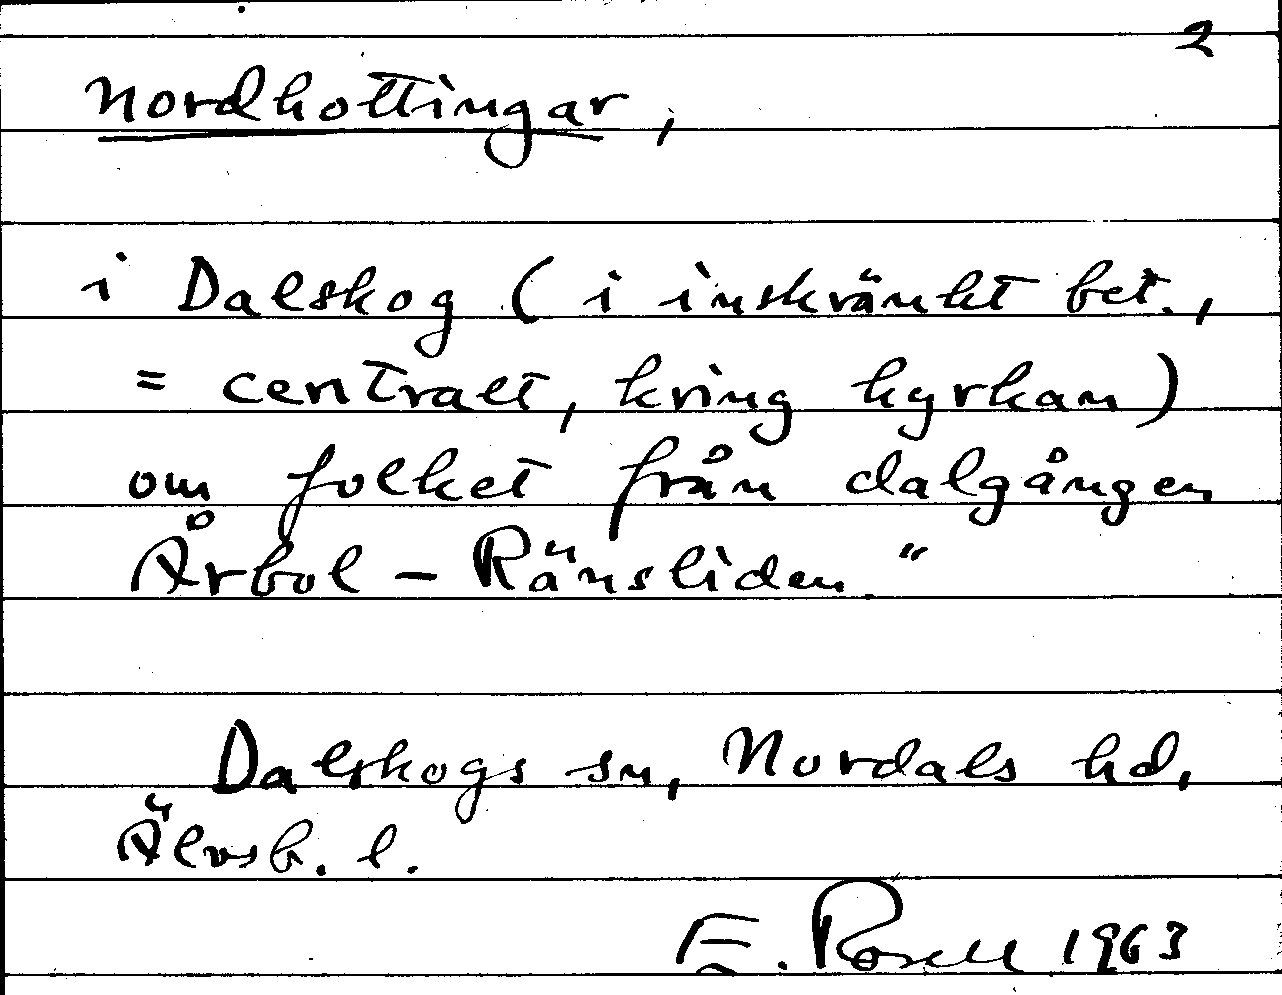 2
Nordhottingar,
i Dalskog (i inskränkt bet.,
= centralt, kring kyrkan)
om folket från dalgången
Årbol – Ränsliden."
Dalskogs sn, Nordals hd,
Älvsb. l.
E. Rosell 1963